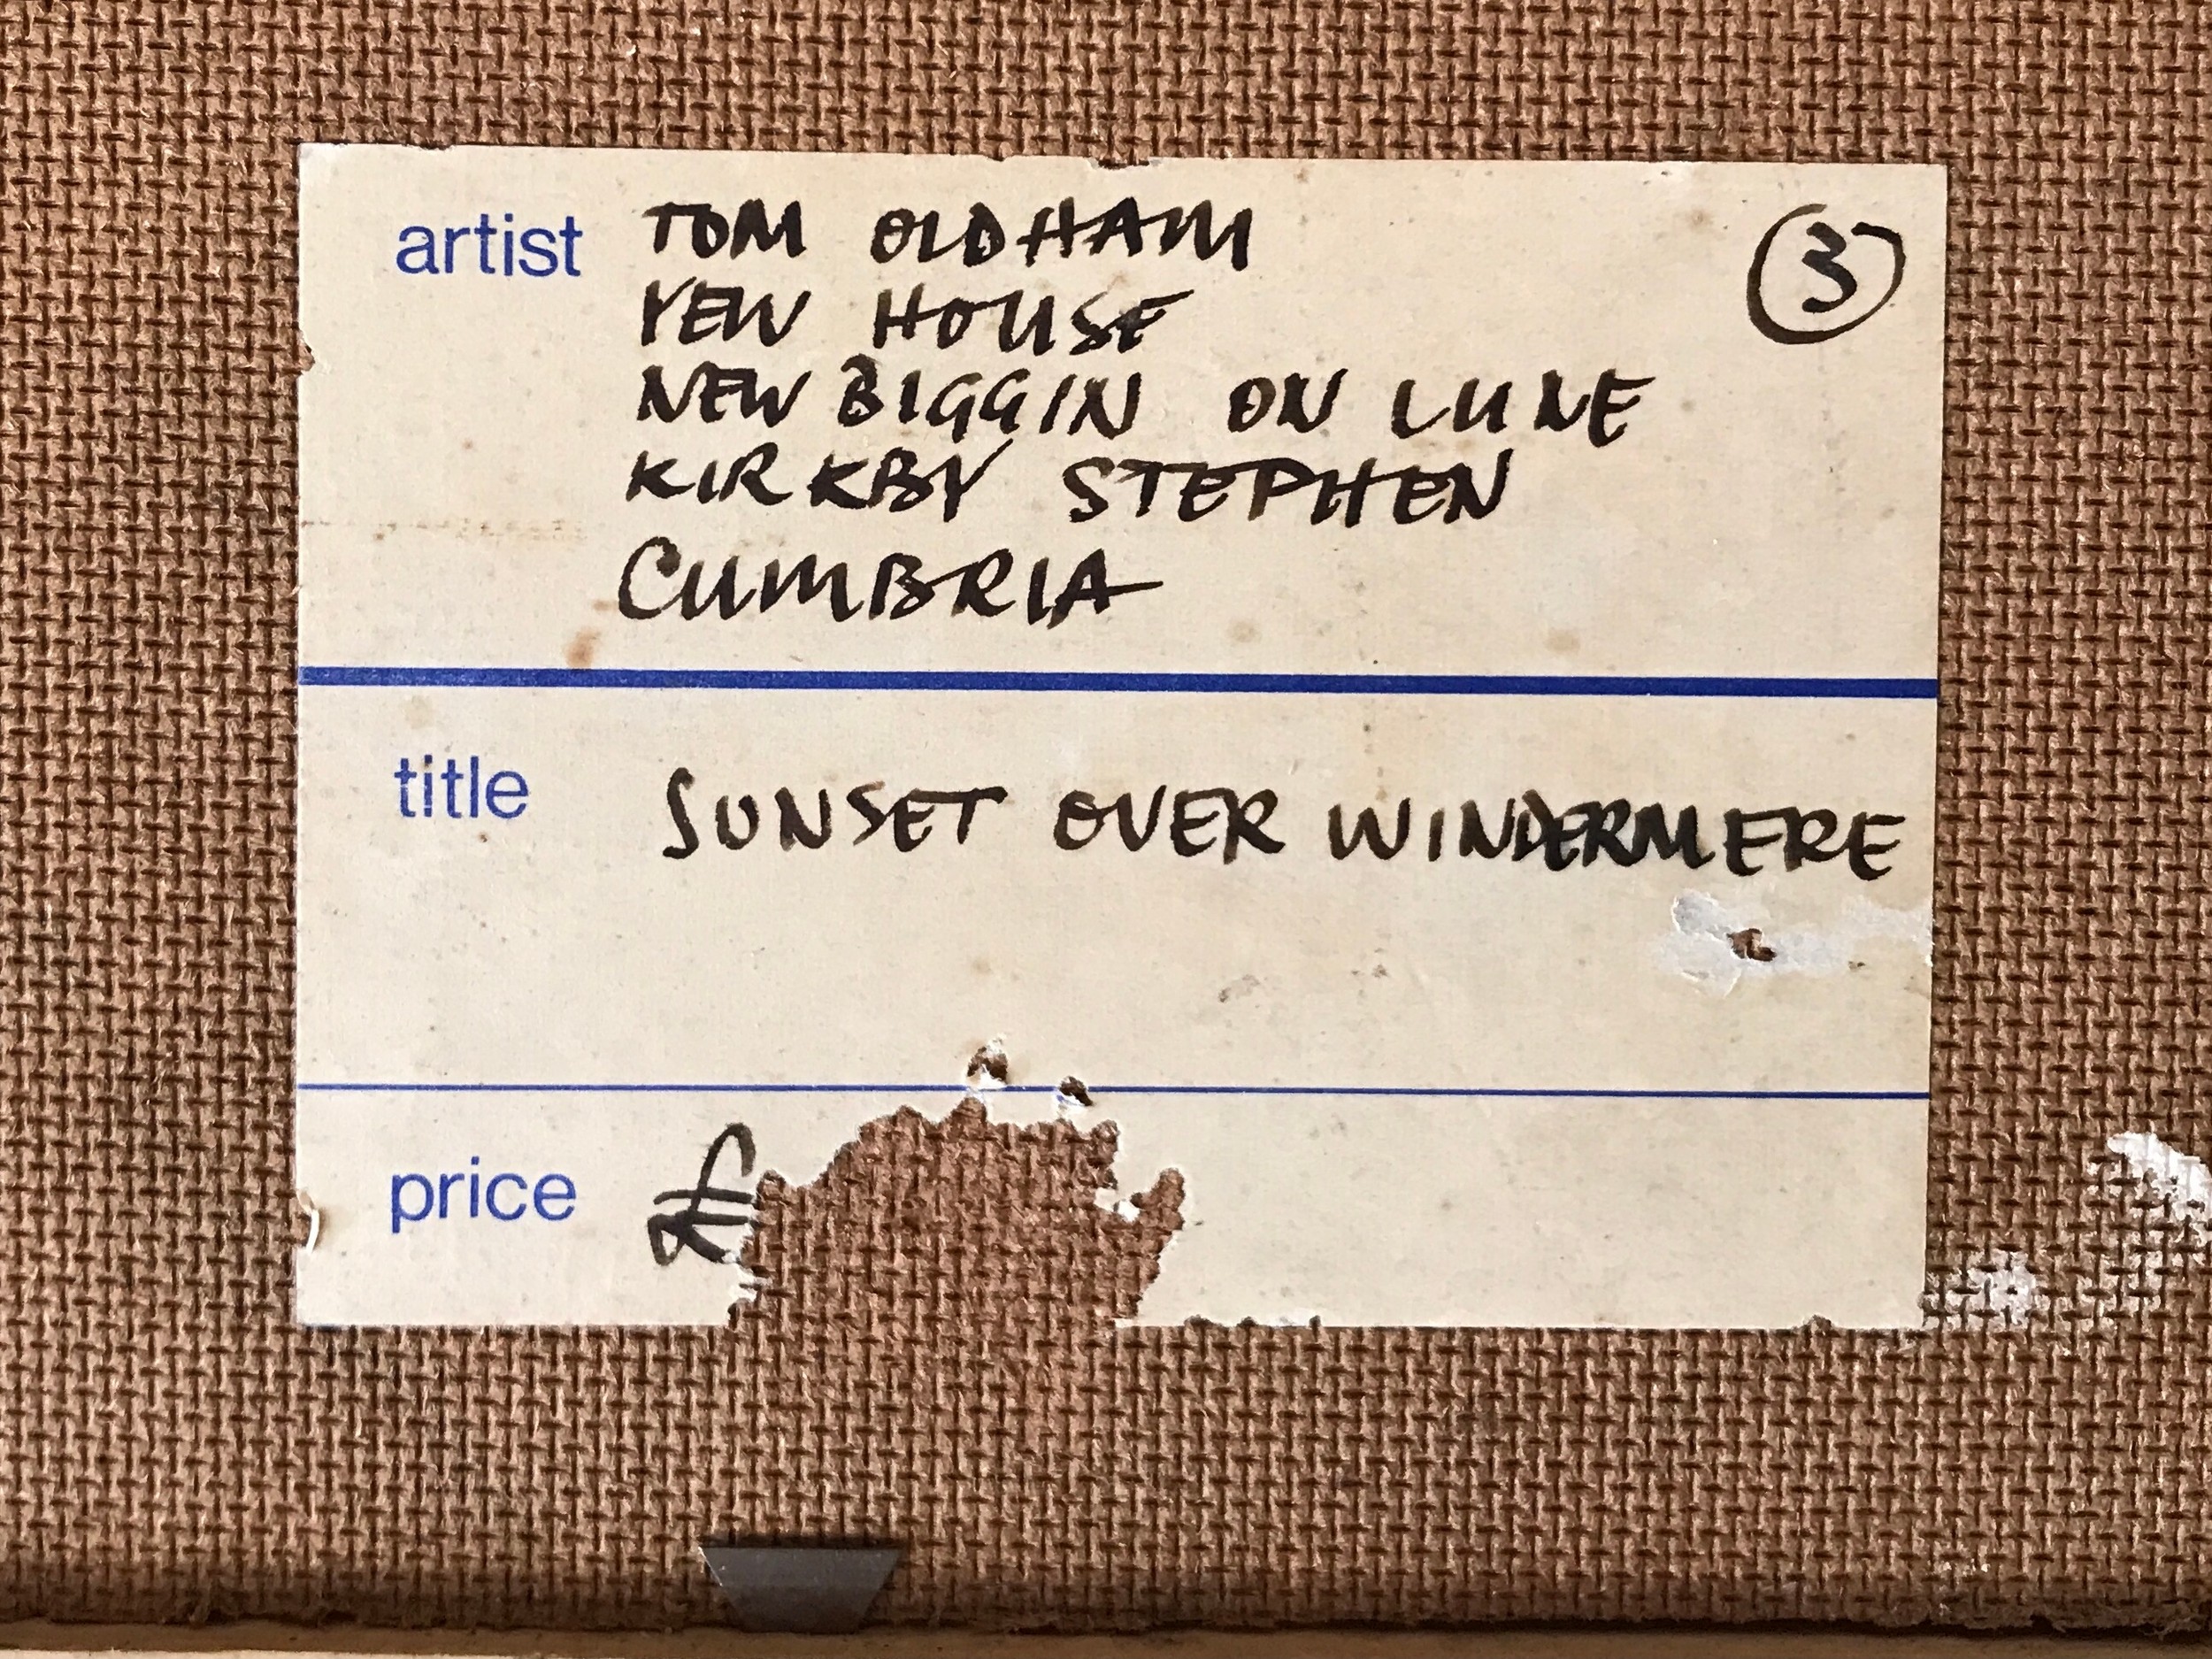 artist TOM OLDHAM ③
YEW HOUSE
NEWBIGGIN ON LUNE
KIRKBY STEPHEN
CUMBRIA
title SUNSET OVER WINDERMERE
price £